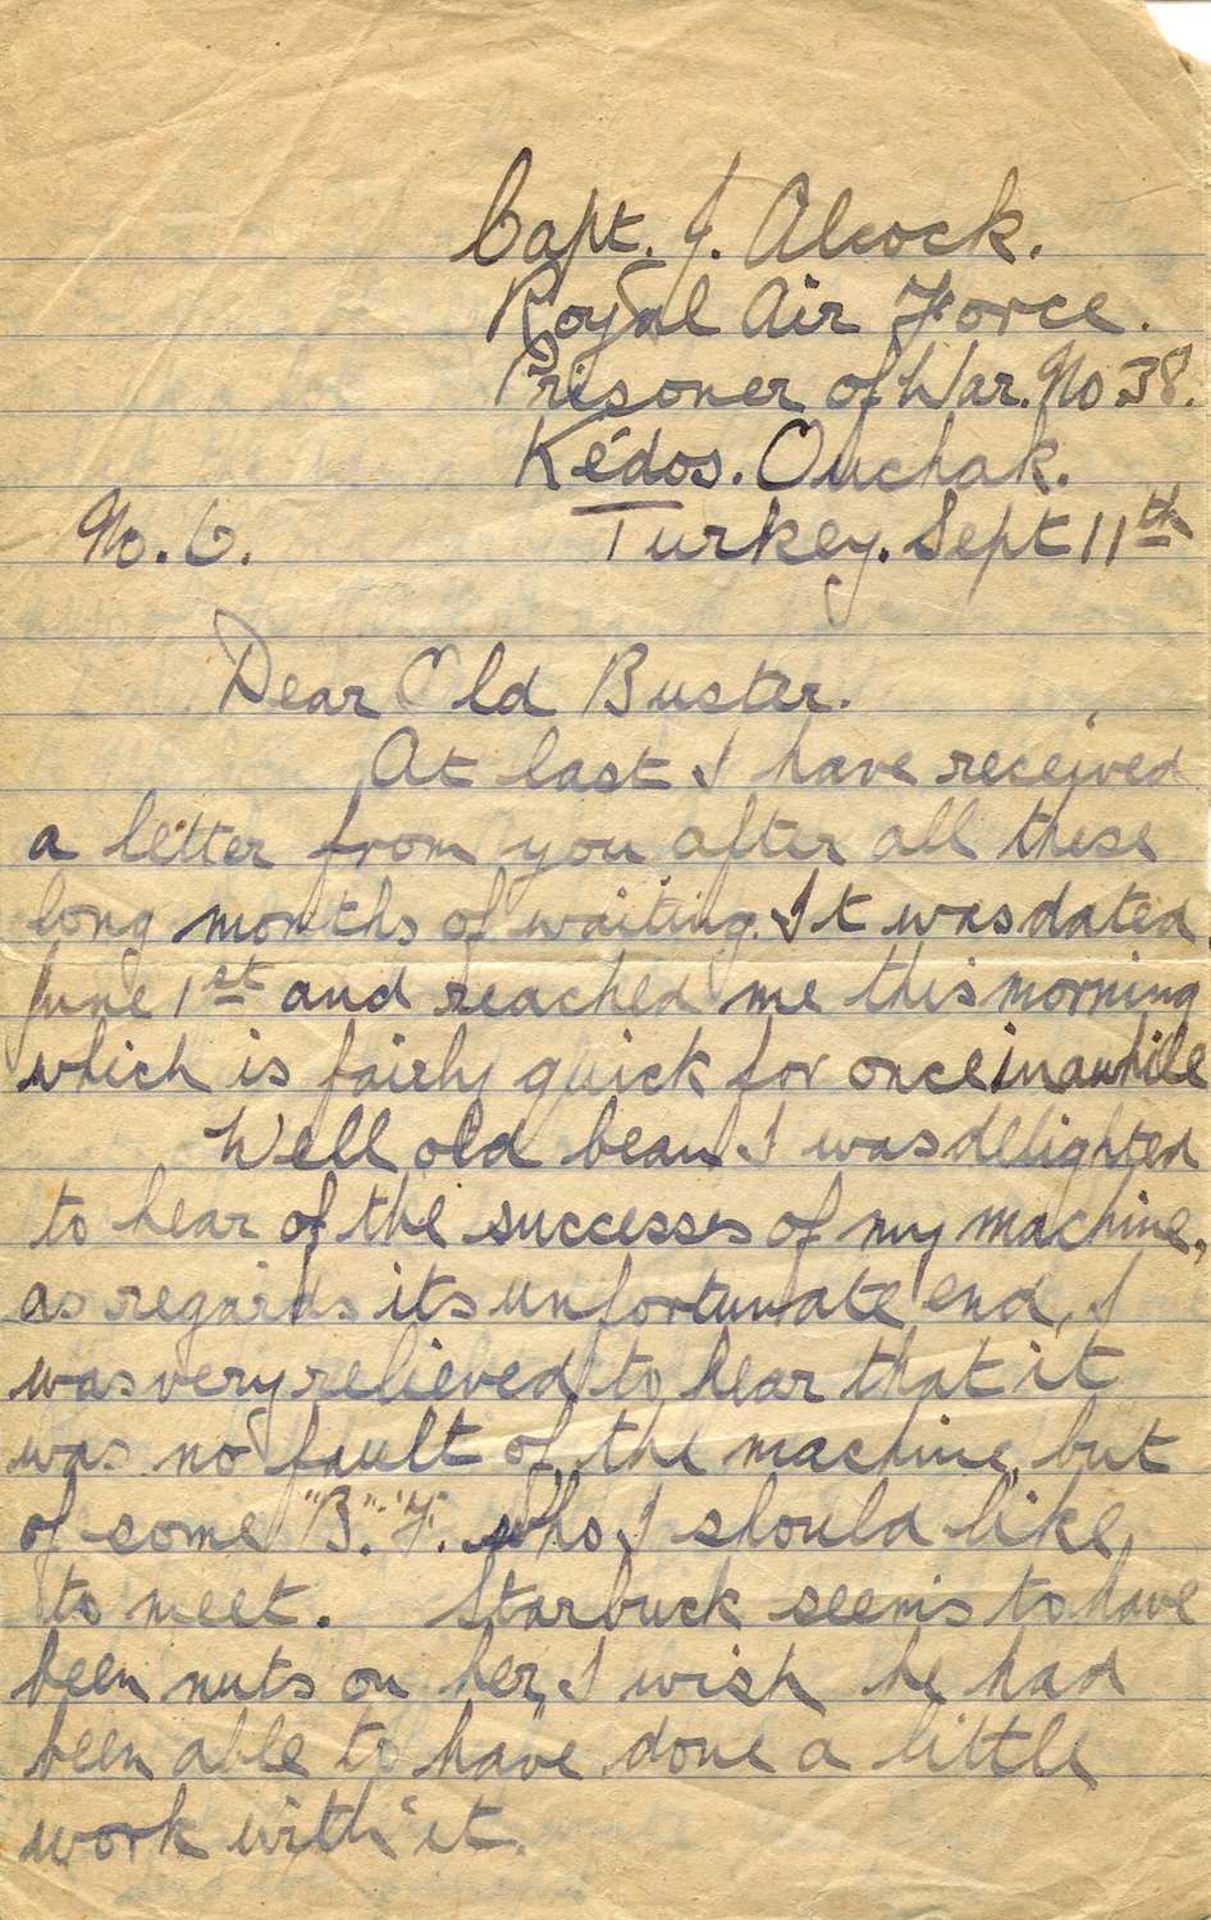 Capt. J. Alcock.
Royal Air Force.
Prisoner of War. No 38.
Kédos. Ouchak.
No. 6. Turkey. Sept 11th
Dear Old Buster.
At last I have received
a letter from you after all these
long months of waiting. It was dated
June 1st and reached me this morning
which is fairly quick for once in awhile
Well old bean I was delighted
to hear of the successes of my machine,
as regards its unfortunate end, I
was very relieved to hear that it
was no fault of the machine, but
of some "B". "F". who I should like
to meet. Starbuck seems to have
been nuts on her, I wish he had
been able to have done a little
work with it.